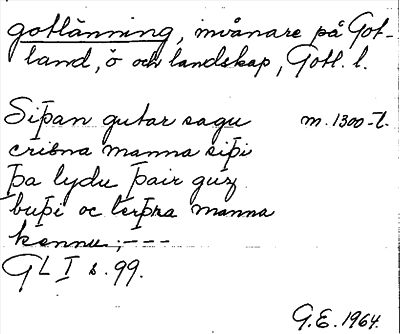 gotlänning, invånare på Got-
land, ö och landskap, Gotl. l.
Siþan gutar sagu m. 1300-t.
cristna manna siþi
þa lydu þair guz
buþi oc lerþra manna
kennu; ---
GL I s. 99.
G.E. 1964.